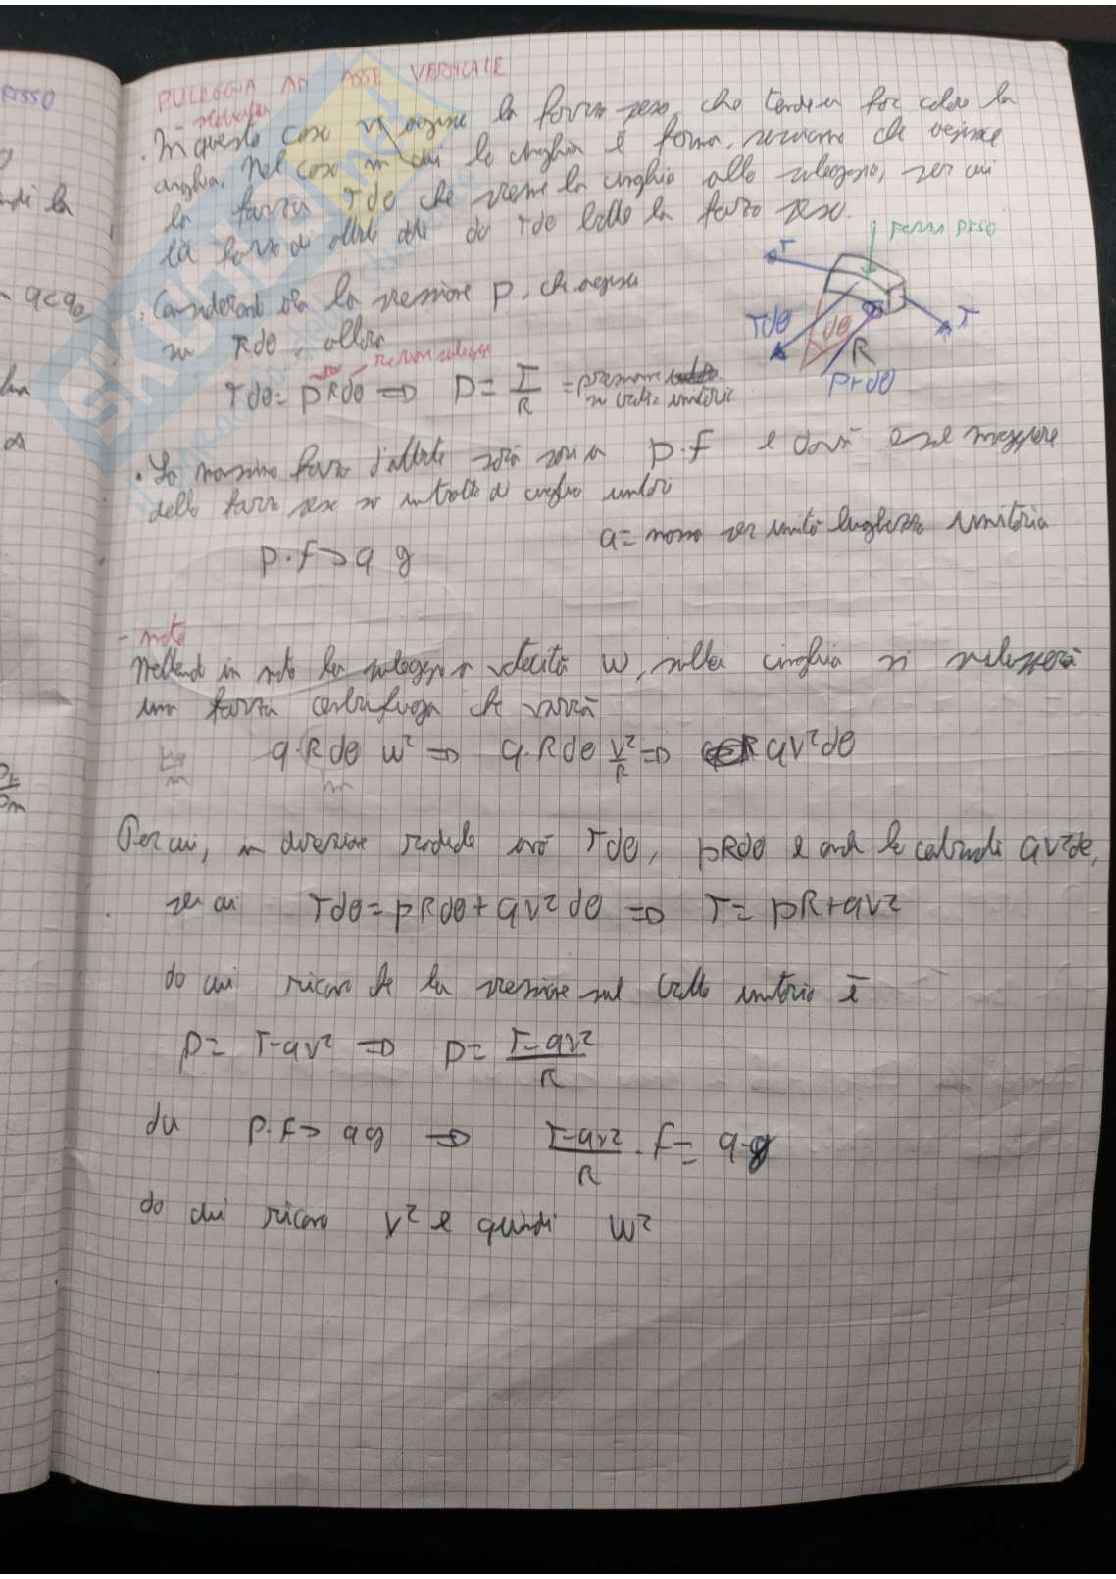 RISSO
PULEGGIA AD ASSE VERTICALE
. In questo caso vi agisce la forza peso, che tende a far cadere la
cinghia. Nel caso in cui la cinghia è ferma, che agisce
la forza Tdθ che preme la cinghia alla puleggia, per cui
la forza di attrito da Tdθ la forza peso.
forza peso
T
Tdθ
dθ
R
T
prdθ
q<q₀
. Considerando ora la pressione p, che agisce
su Rdθ, allora
Tdθ = pRdθ ⇒ p = T/R = pressione
su unitario
. La massima forza d'attrito sarà pari a p.f e dovrà essere maggiore
della forza peso di cinghia
a = massa per unità lunghezza unitaria
p.f > q g
- moto
Mettendo in moto la puleggia a velocità w, sulla cinghia si svilupperà
una forza centrifuga che varrà
q.Rdθ w² ⇒ q.Rdθ v²/R ⇒ qv²dθ
Per cui, in direzione radiale avrò Tdθ, pRdθ e anche la centrifuga qv²dθ,
per cui Tdθ = pRdθ + qv²dθ ⇒ T = pR + qv²
da cui ricavo che la pressione sul unitario è
p = T-qv² ⇒ p = T-qv²/R
da p.f > qg ⇒ T-qv²/R . f = q.g
da cui ricavo v² e quindi w²